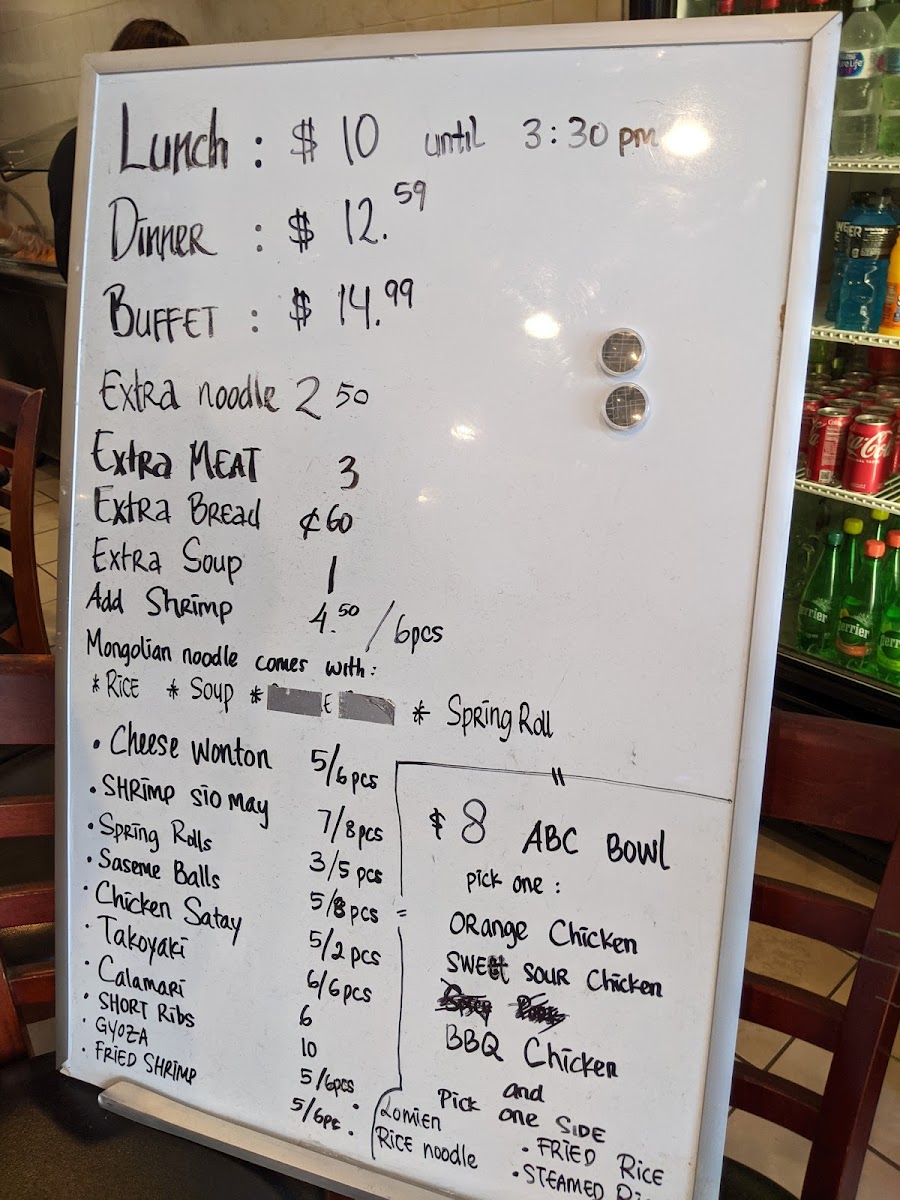 Lunch : $ 10 until 3:30 pm
Dinner : $ 12.59
BUFFET : $ 14.99
Extra noodle 2 50
Extra MEAT 3
Extra BREad ¢60
Extra Soup 1
Add Shrimp 4.50 / 6pcs
Mongolian noodle comes with :
* RICE * Soup * E * Spring Roll
• Cheese wonton 5/6pcs
• SHRimp sio may 7/8pcs
• Spring Rolls 3/5 pcs
• Saseme Balls 5/8pcs
• Chicken Satay 5/2 pcs
• Takoyaki 6/6pcs
• Calamari 6
• SHORT Ribs 10
• GYOZA 5/6pcs
• FRIED SHRIMP 5/6pc.
$ 8 ABC Bowl
pick one :
ORange Chicken
SWEET SOUR Chicken
BBQ Chicken
and
Pick one SIDE
Lomien
Rice noodle
• FRIED Rice
• STEAMED
Coca-Cola
Perrier